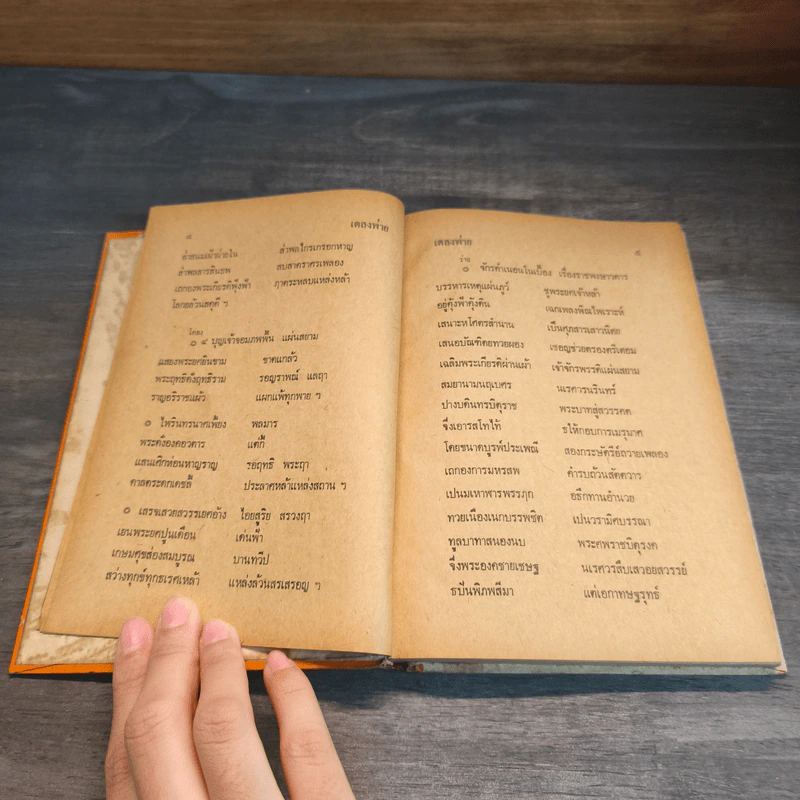 ๔ เตลงพ่าย
ลำพลไกรเกรอกหาญ
ลำพลสารสินธพ สบสาตราศรเพลอง
เถกองพระเกียรดิฟุ้งฟ้า ภาคระหลบแหล่งหล้า
โลกยล้วนสดุดี ฯ
โคลง
๐ ๔ บุญเจ้าจอมภพพื้น แผ่นสยาม
แสยงพระยศยินขาม ขาดแกล้ว
พระฤทธิดั่งฤทธิราม รอญราพณ์ แลฤๅ
ราญอริราชแผ้ว แผกแพ้ทุกพาย ฯ
๐ ไพรินทรนาศเพี้ยง พลมาร
พระดั่งองคอวตาร แต่กี้
แสนเศิกห่อนหาญราญ รอฤทธิ พระฤๅ
ดาลตระดกเดชลี้ ประลาศหล้าแหล่งสถาน ฯ
๐ เสรจเสวยสวรรเยศอ้าง ไอยสูริย สรวงฤๅ
เยนพระยศปูนเดือน เด่นฟ้า
เกษมศุขส่องสมบูรณ บานทวีป
สว่างทุกข์ทุกธเรศเหล้า แหล่งล้วนสรเสรอญ ฯ
เตลงพ่าย ๕
ร่าย
๐ จักรดำเนอนในเบื้อง เรื่องราชพงษาวดาร
บรรหารเหตุแผ่นภูว์ ชูพระยศเจ้าหล้า
อยู่คุ้งฟ้าคุ้งดิน เฉกเพลงพิณไพเราะห์
เสนาะหโศตรสำนาน เป็นศุภสารเสาวนิตย
เสนอบัณฑิตยทวยผอง เชอญช่วยตรองตริเตอม
เฉลิมพระเกียรติผ่านเผ้า เจ้าจักรพรรดิแผ่นสยาม
สมยานามนฤเบศร นเรศวรนรินทร์
ปางบดินทรบิตุราช พระบาทสู่สวรรคต
จึ่งเอารสไทไท้ ธให้กอบการเมรุมาศ
โดยขนาดบูรพ์ประเพณี สองกระษัตรีย์ถวายเพลอง
เถกองการมหรสพ คำรบถ้วนสัตตวาร
เปนมหาทารพรรฦก อธึกทานอำนวย
ทวยเนืองเนกบรรพชิต เปนวรามิศบรรณา
ทูลบาทาสนองนบ พระศพราชบิตุรงค
จึ่งพระองคชายเชษฐ นเรศวรสืบเสวอยสวรรย์
ธปันพิภพสีมา แด่เอกาทษฐรุทธ์